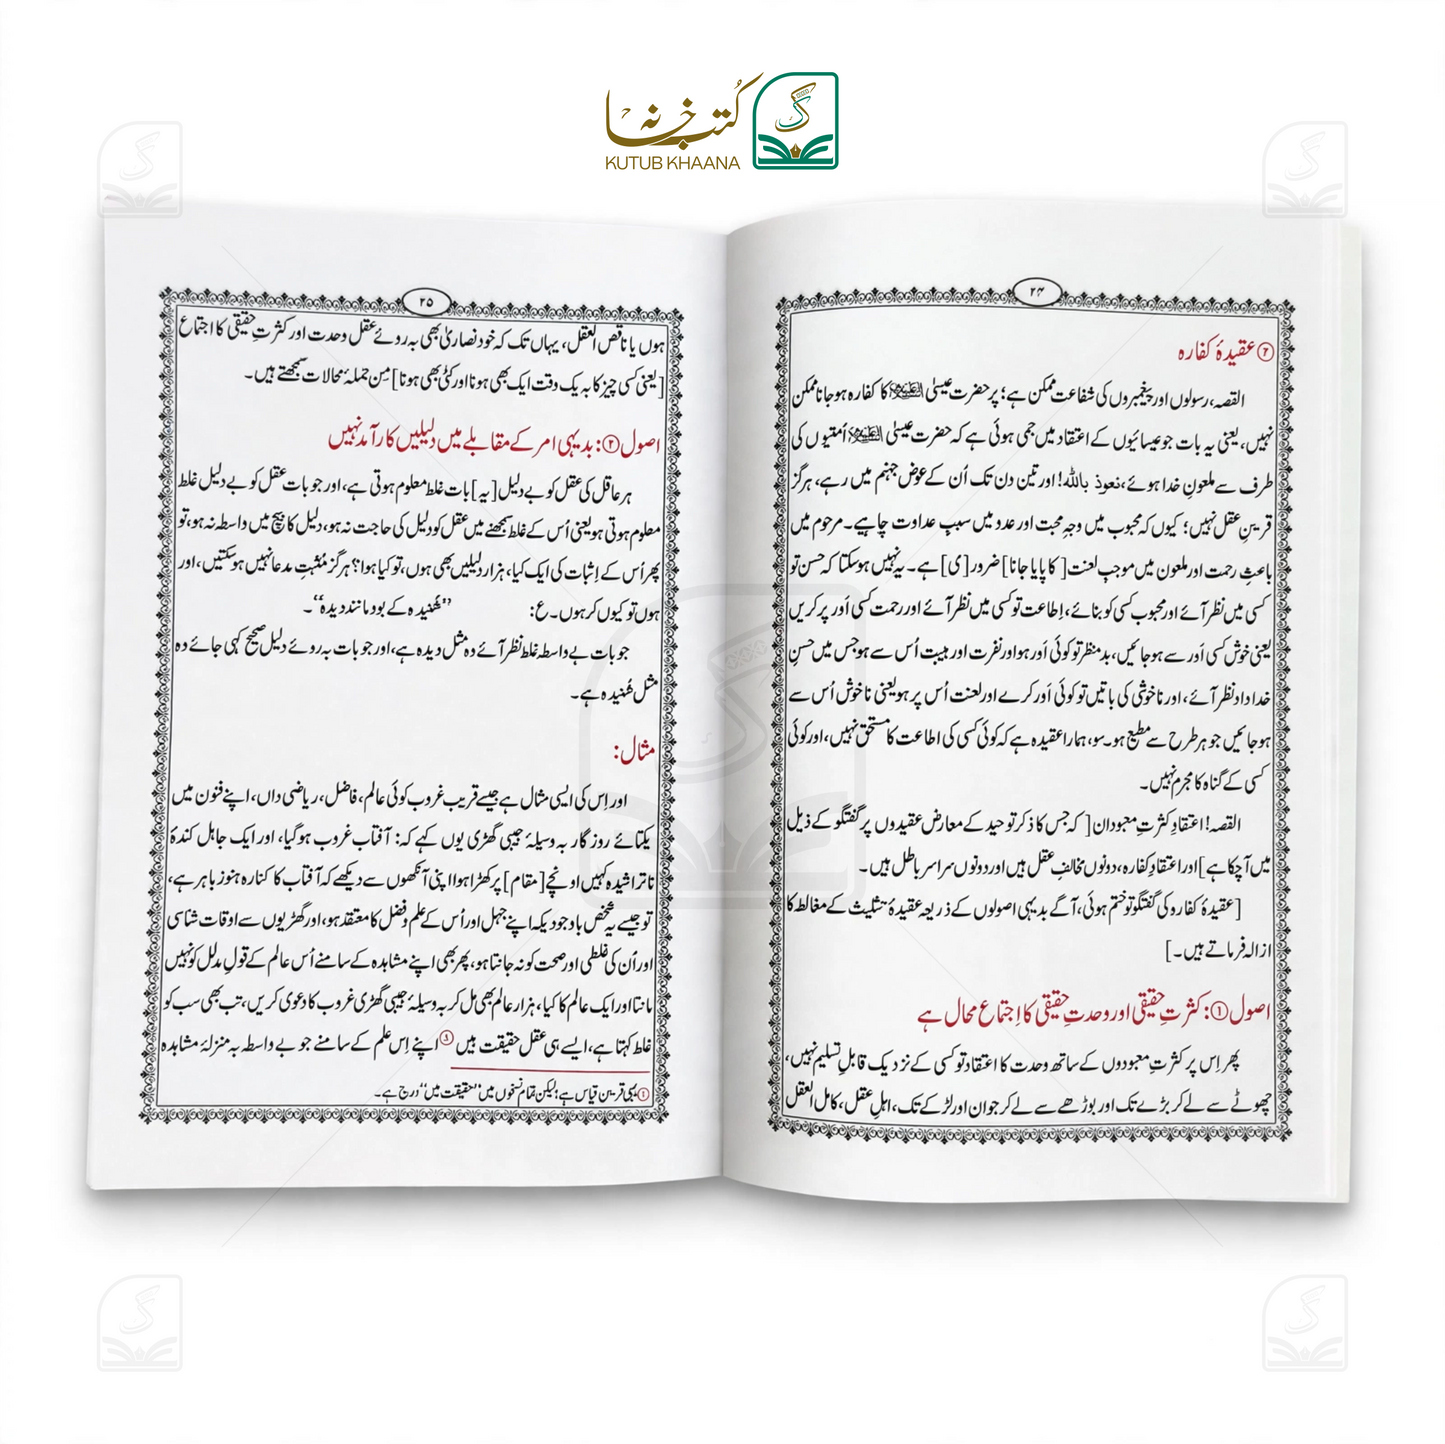 کتب خانہ
KUTUB KHAANA
۲۴
② عقیدۂ کفارہ
القصہ، رسولوں اور پیغمبروں کی شفاعت ممکن ہے؛ پر حضرت عیسیٰ علیہ السلام کا کفارہ ہوجانا ممکن
نہیں، یعنی یہ بات جو عیسائیوں کے اعتقاد میں جمی ہوئی ہے کہ حضرت عیسیٰ علیہ السلام اُمتیوں کی
طرف سے ملعونِ خدا ہوئے، نعوذ باللہ! اور تین دن تک اُن کے عوض جہنم میں رہے، ہرگز
قرینِ عقل نہیں؛ کیوں کہ محبوب میں وجہِ محبت اور عدو میں سببِ عداوت چاہیے۔ مرحوم میں
باعثِ رحمت اور ملعون میں موجبِ لعنت [کا پایا جانا] ضرور [ی] ہے۔ یہ نہیں ہوسکتا کہ حسن تو
کسی میں نظر آئے اور محبوب کسی کو بنائے، اِطاعت تو کسی میں نظر آئے اور رحمت کسی اَور پر کریں
یعنی خوش کسی اَور سے ہوجائیں، بدمنظر تو کوئی اَور ہو اور نفرت اور ہیبت اُس سے ہو جس میں حسنِ
خداداد نظر آئے، اور ناخوشی کی باتیں تو کوئی اَور کرے اور لعنت اُس پر ہو یعنی ناخوش اُس سے
ہوجائیں جو ہر طرح سے مطیع ہو۔ سو، ہمارا عقیدہ ہے کہ کوئی کسی کی اطاعت کا مستحق نہیں، اور کوئی
کسی کے گناہ کا مجرم نہیں۔
القصہ! اعتقادِ کثرتِ معبودان [کہ جس کا ذکر توحید کے معارض عقیدوں پر گفتگو کے ذیل
میں آچکا ہے] اور اعتقادِ کفارہ، دونوں مخالفِ عقل ہیں اور دونوں سراسر باطل ہیں۔
[عقیدۂ کفارہ کی گفتگو تو ختم ہوئی، آگے بدیہی اصولوں کے ذریعہ عقیدۂ تثلیث کے مغالطہ کا
ازالہ فرماتے ہیں۔]
اصول ①: کثرتِ حقیقی اور وحدتِ حقیقی کا اِجتماع محال ہے
پھر اِس پر کثرتِ معبودوں کے ساتھ وحدت کا اعتقاد تو کسی کے نزدیک قابلِ تسلیم نہیں،
چھوٹے سے لے کر بڑے تک اور بوڑھے سے لے کر جوان اور لڑکے تک، اہلِ عقل، کامل العقل
۲۵
ہوں یا ناقص العقل، یہاں تک کہ خود نصاریٰ بھی بہ روئے عقل وحدت اور کثرتِ حقیقی کا اجتماع
[یعنی کسی چیز کا بہ یک وقت ایک بھی ہونا اور کئی بھی ہونا] مِن جملۂ محالات سمجھتے ہیں۔
اصول ②: بدیہی امر کے مقابلے میں دلیلیں کارآمد نہیں
ہر عاقل کی عقل کو بے دلیل [یہ] بات غلط معلوم ہوتی ہے، اور جو بات عقل کو بے دلیل غلط
معلوم ہوتی ہو یعنی اُس کے غلط سمجھنے میں عقل کو دلیل کی حاجت نہ ہو، دلیل کا بیچ میں واسطہ نہ ہو، تو
پھر اُس کے اِثبات کی ایک کیا، ہزار دلیلیں بھی ہوں، تو کیا ہوا؟ ہرگز مُثبِتِ مدعا نہیں ہوسکتیں، اور
ہوں تو کیوں کر ہوں۔ ع: ’’شُنیدہ کے بود مانند دیدہ‘‘۔
جو بات بے واسطہ غلط نظر آئے وہ مثل دیدہ ہے، اور جو بات بہ روئے دلیل صحیح کہی جائے وہ
مثل شُنیدہ ہے۔
مثال:
اور اِس کی ایسی مثال ہے جیسے قریب غروب کوئی عالم، فاضل، ریاضی داں، اپنے فنون میں
یکتائے روزگار بہ وسیلۂ جیبی گھڑی یوں کہے کہ: آفتاب غروب ہوگیا، اور ایک جاہل کندۂ
ناتراشیدہ کہیں اونچے [مقام] پر کھڑا ہوا اپنی آنکھوں سے دیکھے کہ آفتاب کا کنارہ ہنوز باہر ہے،
تو جیسے یہ شخص باوجودیکہ اپنے جہل اور اُس کے علم وفضل کا معتقد ہو، اور گھڑیوں سے اوقات شناسی
اور اُن کی غلطی اور صحت کو نہ جانتا ہو، پھر بھی اپنے مشاہدہ کے سامنے اُس عالم کے قولِ مدلل کو نہیں
مانتا اور ایک عالم کا کیا، ہزار عالم بھی مل کر بہ وسیلۂ جیبی گھڑی غروب کا دعویٰ کریں، تب بھی سب کو
غلط کہتا ہے، ایسے ہی عقل حقیقت ہیں① اپنے اِس علم کے سامنے جو بے واسطہ بہ منزلۂ مشاہدہ
① یہی قرین قیاس ہے؛ لیکن تمام نسخوں میں ’’حقیقت میں‘‘ درج ہے۔